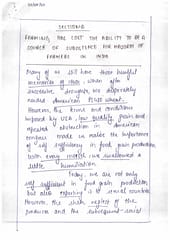 SECTION B
FARMING HAS LOST THE ABILITY TO BE A
SOURCE OF SUBSISTENCE FOR MAJORITY OF
FARMERS IN INDIA
Many of us still have those painful
memories of 1960s, when after
successive droughts, we desperately
needed American PL480 wheat.
However, the terms and conditions
imposed by USA, low quality grain and
repeated obstruction in American
made us realise the importance
of self sufficiency in food grain production
with every morsel, we swallowed a
little humiliation
Today, we are not only
self sufficient in food grain production
but also exporting it to several countries.
However, the sheer neglect of the
producer and the subsequent